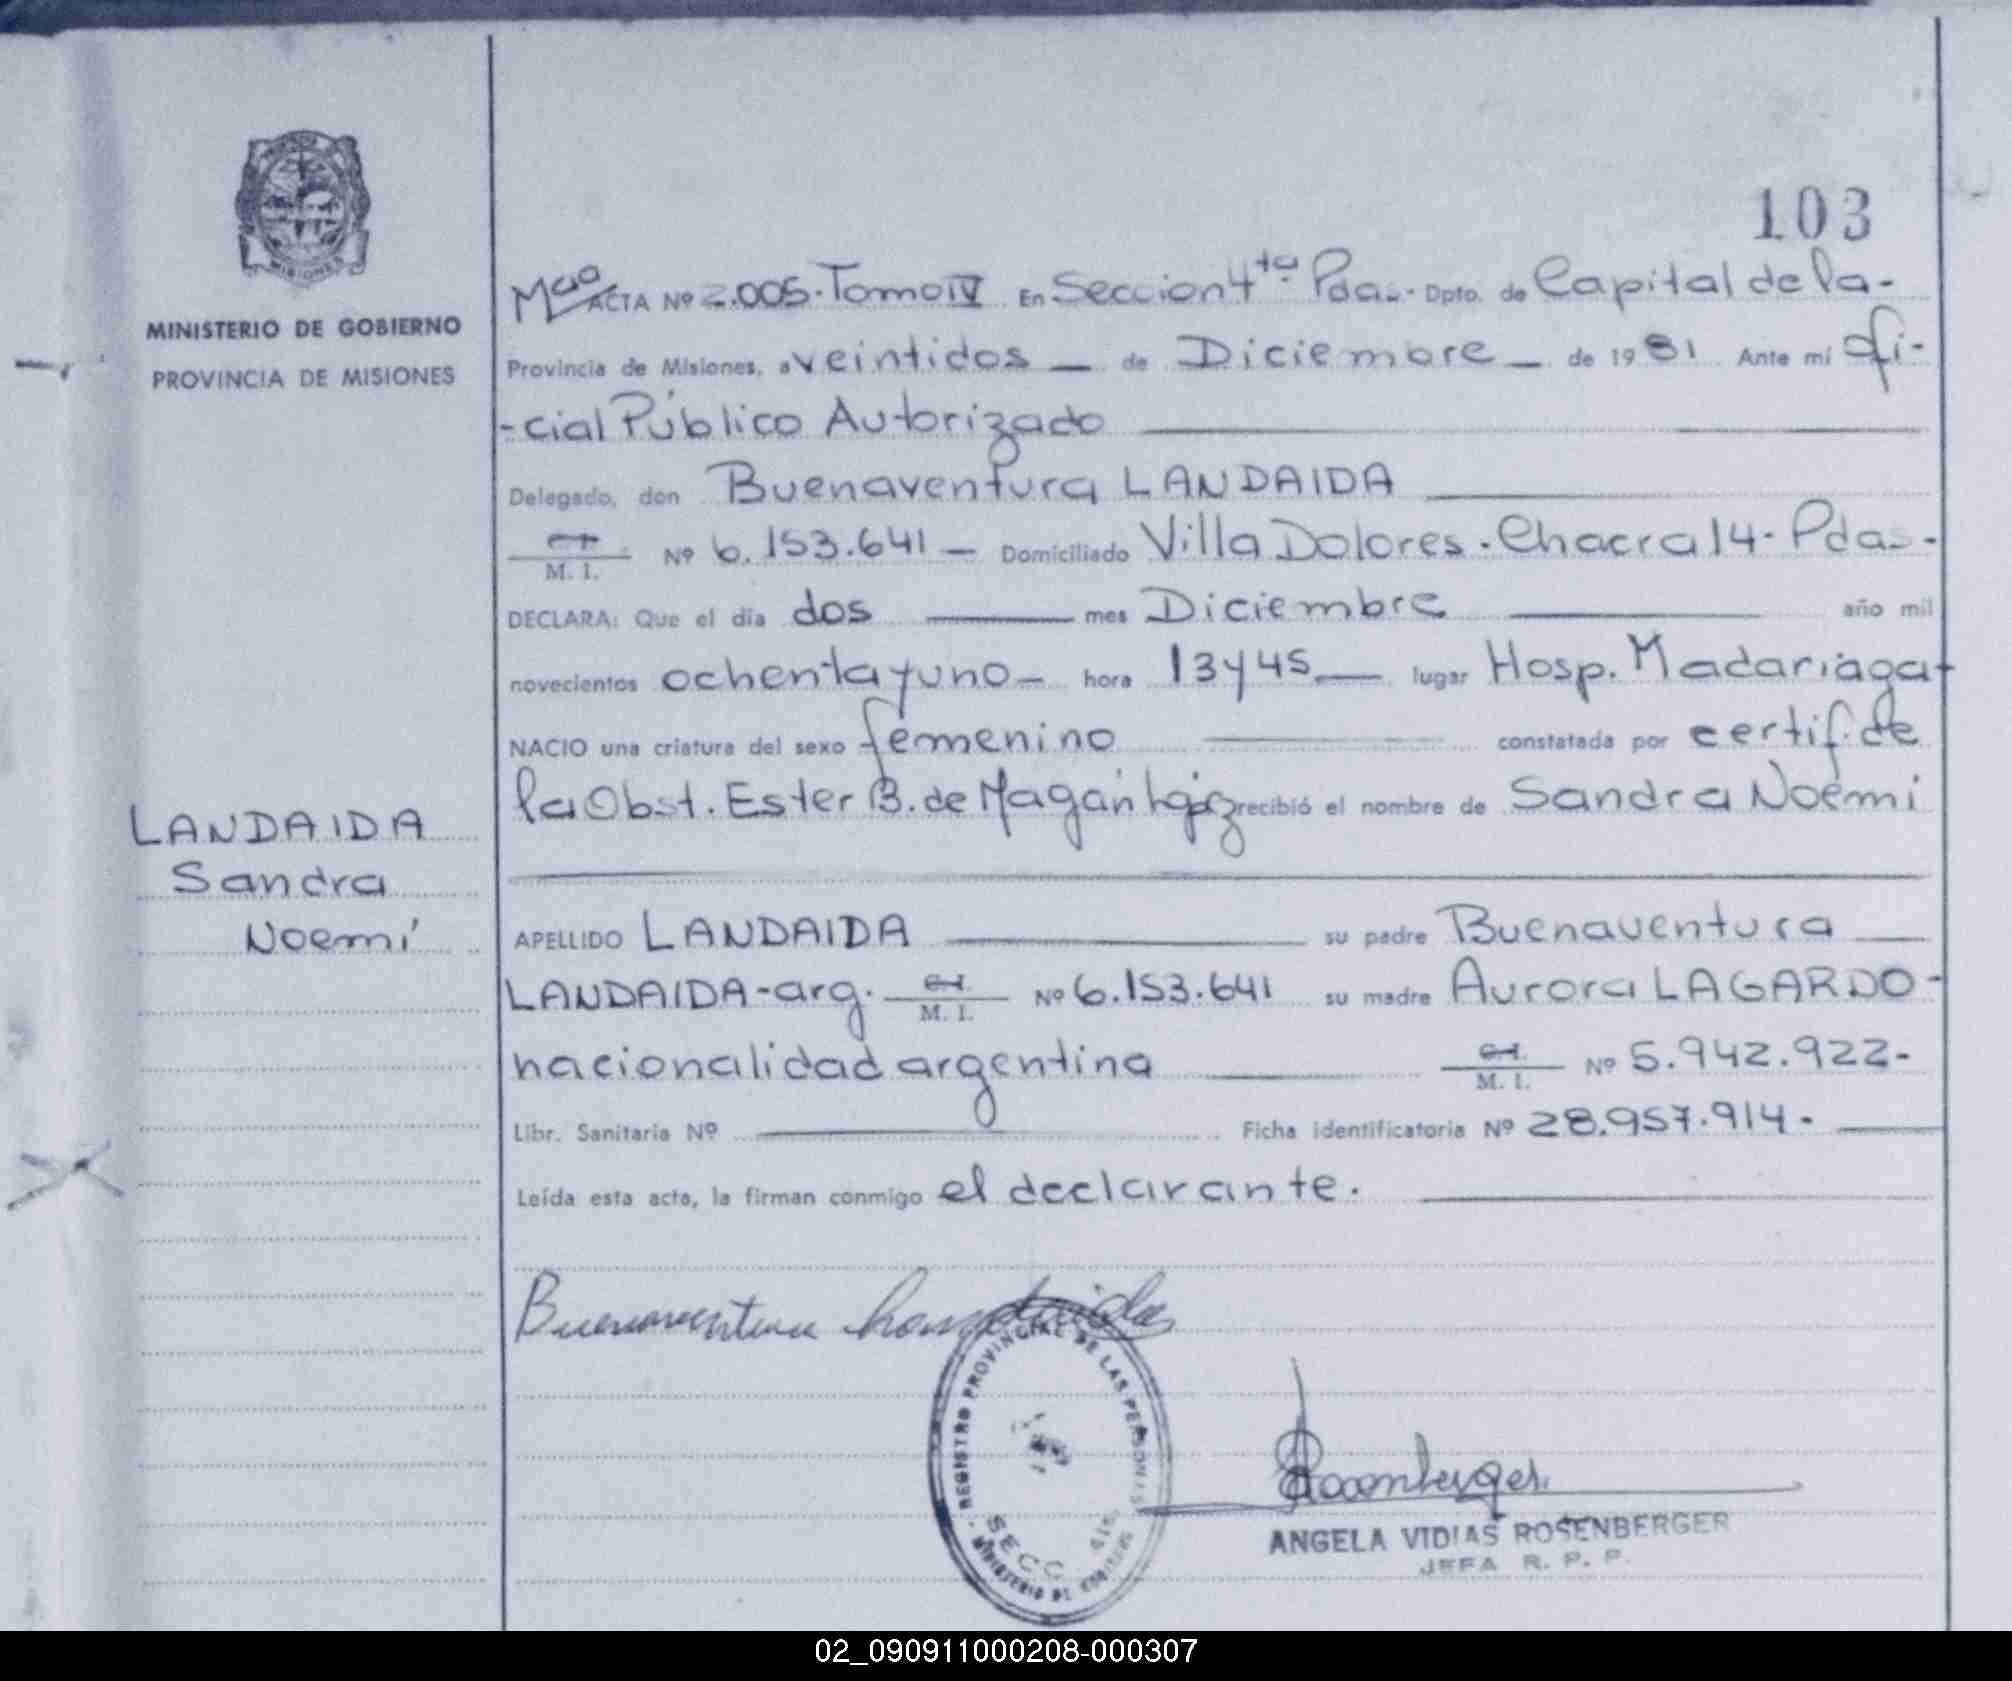 103
MISIONES
MINISTERIO DE GOBIERNO
PROVINCIA DE MISIONES
ACTA Nº 2.005. Tomo IV En Seccion 4ta Pdas.- Dpto. de Capital de la-
Provincia de Misiones, a veintidos — de Diciembre — de 1981 Ante mí Ofi-
-cial Público Autorizado
Delegado, don Buenaventura LANDAIDA
M. I. Nº 6.153.641 — Domiciliado Villa Dolores. Chacra 14. Pdas.-
DECLARA: Que el día dos mes Diciembre año mil
novecientos ochenta y uno — hora 13 y 45 — lugar Hosp. Madariaga
NACIO una criatura del sexo femenino constatada por certif. de
la Obst. Ester B. de Magán recibió el nombre de Sandra Noemí
LANDAIDA
Sandra
Noemí
APELLIDO LANDAIDA su padre Buenaventura
LANDAIDA-arg. M. I. Nº 6.153.641 su madre Aurora LAGARDO-
nacionalidad argentina M. I. Nº 5.942.922-
Libr. Sanitaria Nº Ficha identificatoria Nº 28.957.914.-
Leída esta acta, la firman conmigo el declarante.
Buenaventura Landaida
REGISTRO PROVINCIAL DE LAS PERSONAS
SECC. 4ta
Rosenberger
ANGELA VIDIAS ROSENBERGER
JEFA R. P. P.
02_090911000208-000307